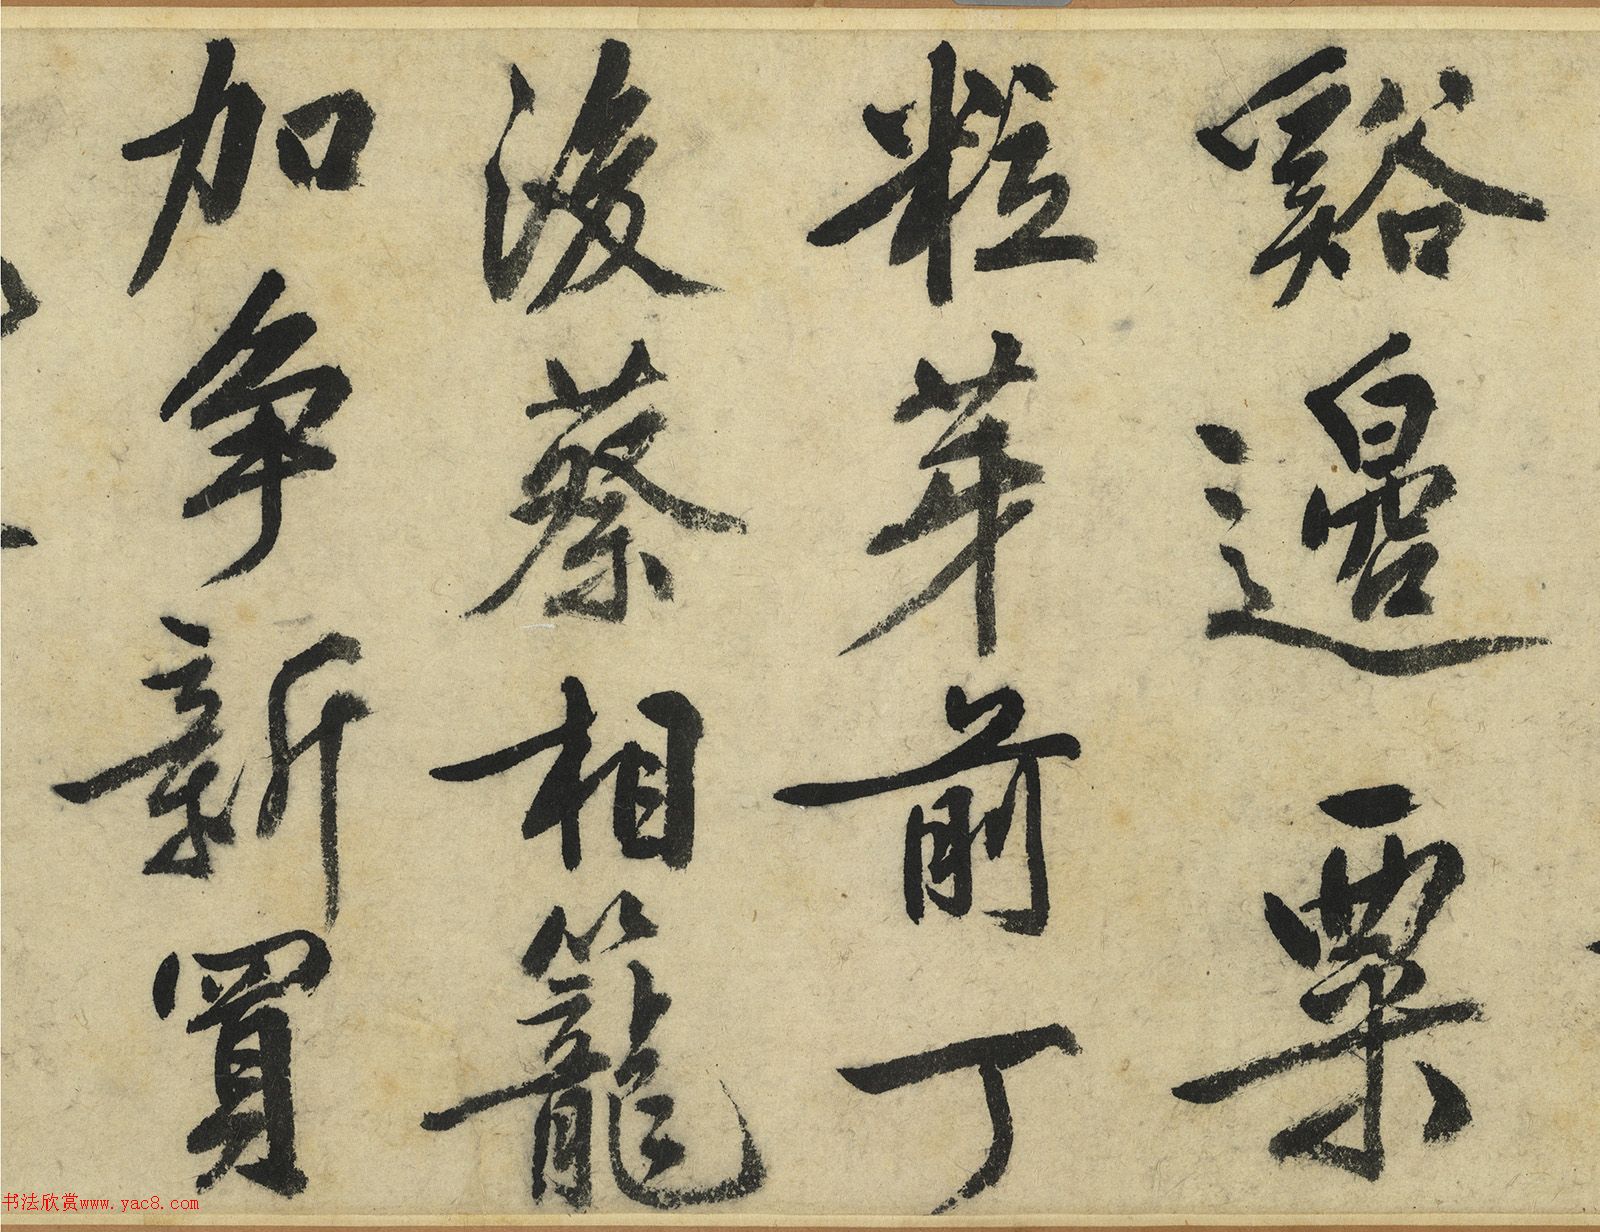 谿邊粟
粒芽前丁
後蔡相籠
加爭新買
书法欣赏www.yac8.com